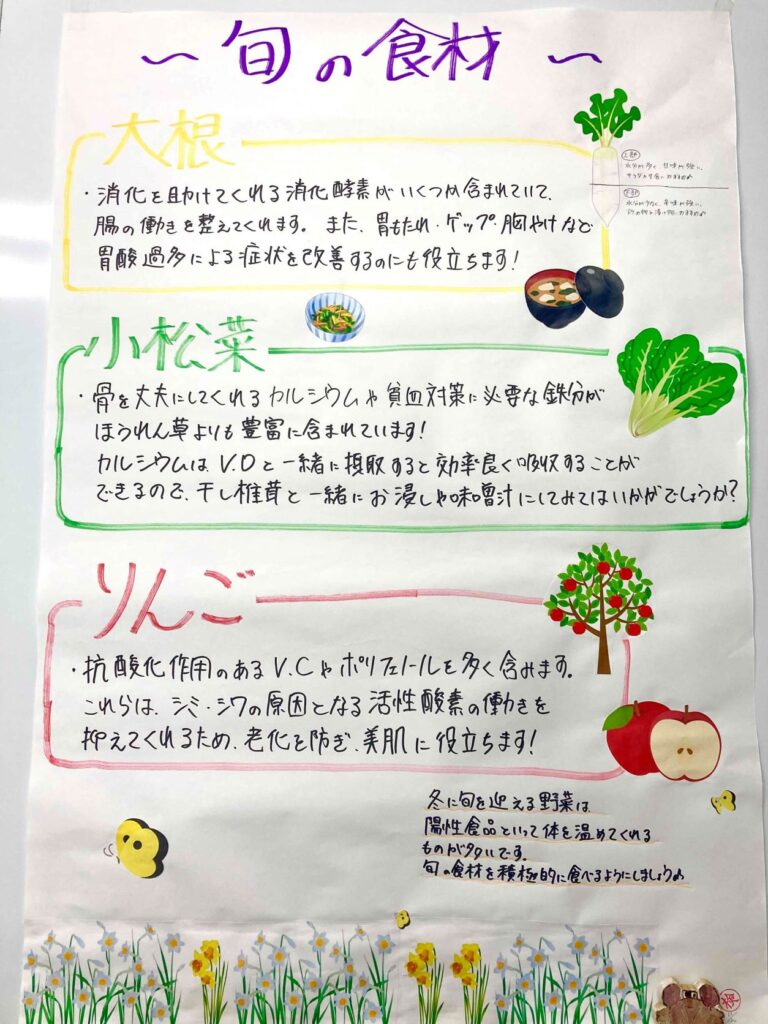 〜 旬の食材 〜
大根
上部
水分が多く、甘味が強い。
サラダや生食におすすめ♪
下部
・消化を助けてくれる消化酵素がいくつか含まれていて、
腸の働きを整えてくれます。また、胃もたれ・ゲップ・胸やけなど
胃酸過多による症状を改善するのにも役立ちます!
小松菜
・骨を丈夫にしてくれるカルシウムや貧血対策に必要な鉄分が
ほうれん草よりも豊富に含まれています!
カルシウムはV.Dと一緒に摂取すると効率良く吸収することが
できるので、干し椎茸と一緒にお浸しや味噌汁にしてみてはいかがでしょうか?
りんご
・抗酸化作用のあるV.Cやポリフェノールを多く含みます。
これらは、シミ・シワの原因となる活性酸素の働きを
抑えてくれるため、老化を防ぎ、美肌に役立ちます!
冬に旬を迎える野菜は
陽性食品といって体を温めてくれる
ものが多いです。
旬の食材を積極的に食べるようにしましょう♪